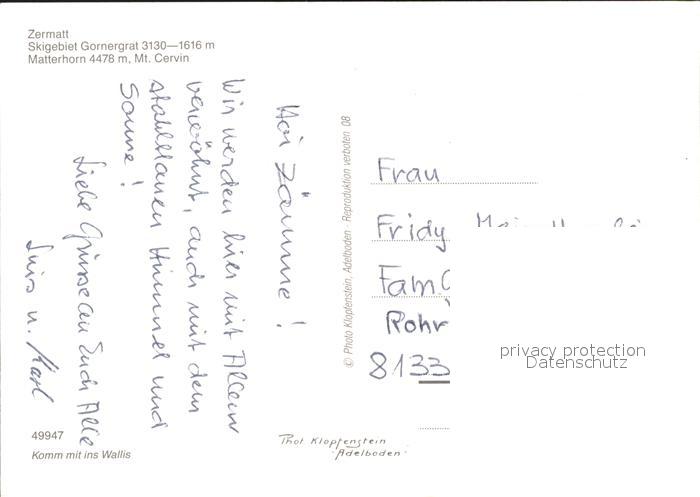 Zermatt
Skigebiet Gornergrat 3130—1616 m
Matterhorn 4478 m, Mt. Cervin
Hoi Zämme!
Wir werden hier mit Allem
verwöhnt, auch mit dem
stahlblauen Himmel und
Sonne!
Liebe Grüsse an Euch Alle
u. Karl
© Photo Klopfenstein, Adelboden - Reproduktion verboten 08
Frau
Fridy
Fam.
Rohr
8133
privacy protection
Datenschutz
49947
Komm mit ins Wallis
Phot Klopfenstein
Adelboden